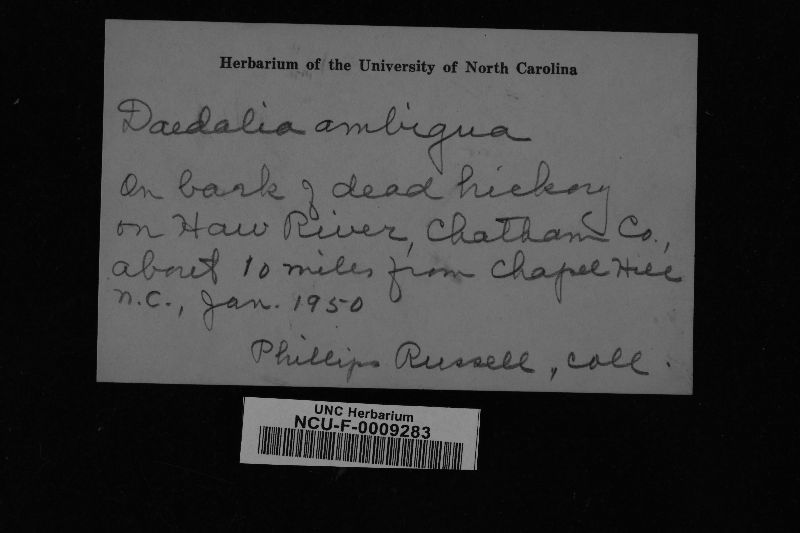 Herbarium of the University of North Carolina
Daedalia ambigua
On bark of dead hickory
on Haw River, Chatham Co.,
about 10 miles from Chapel Hill
N.C., Jan. 1950
Phillips Russell, coll.
UNC Herbarium
NCU-F-0009283